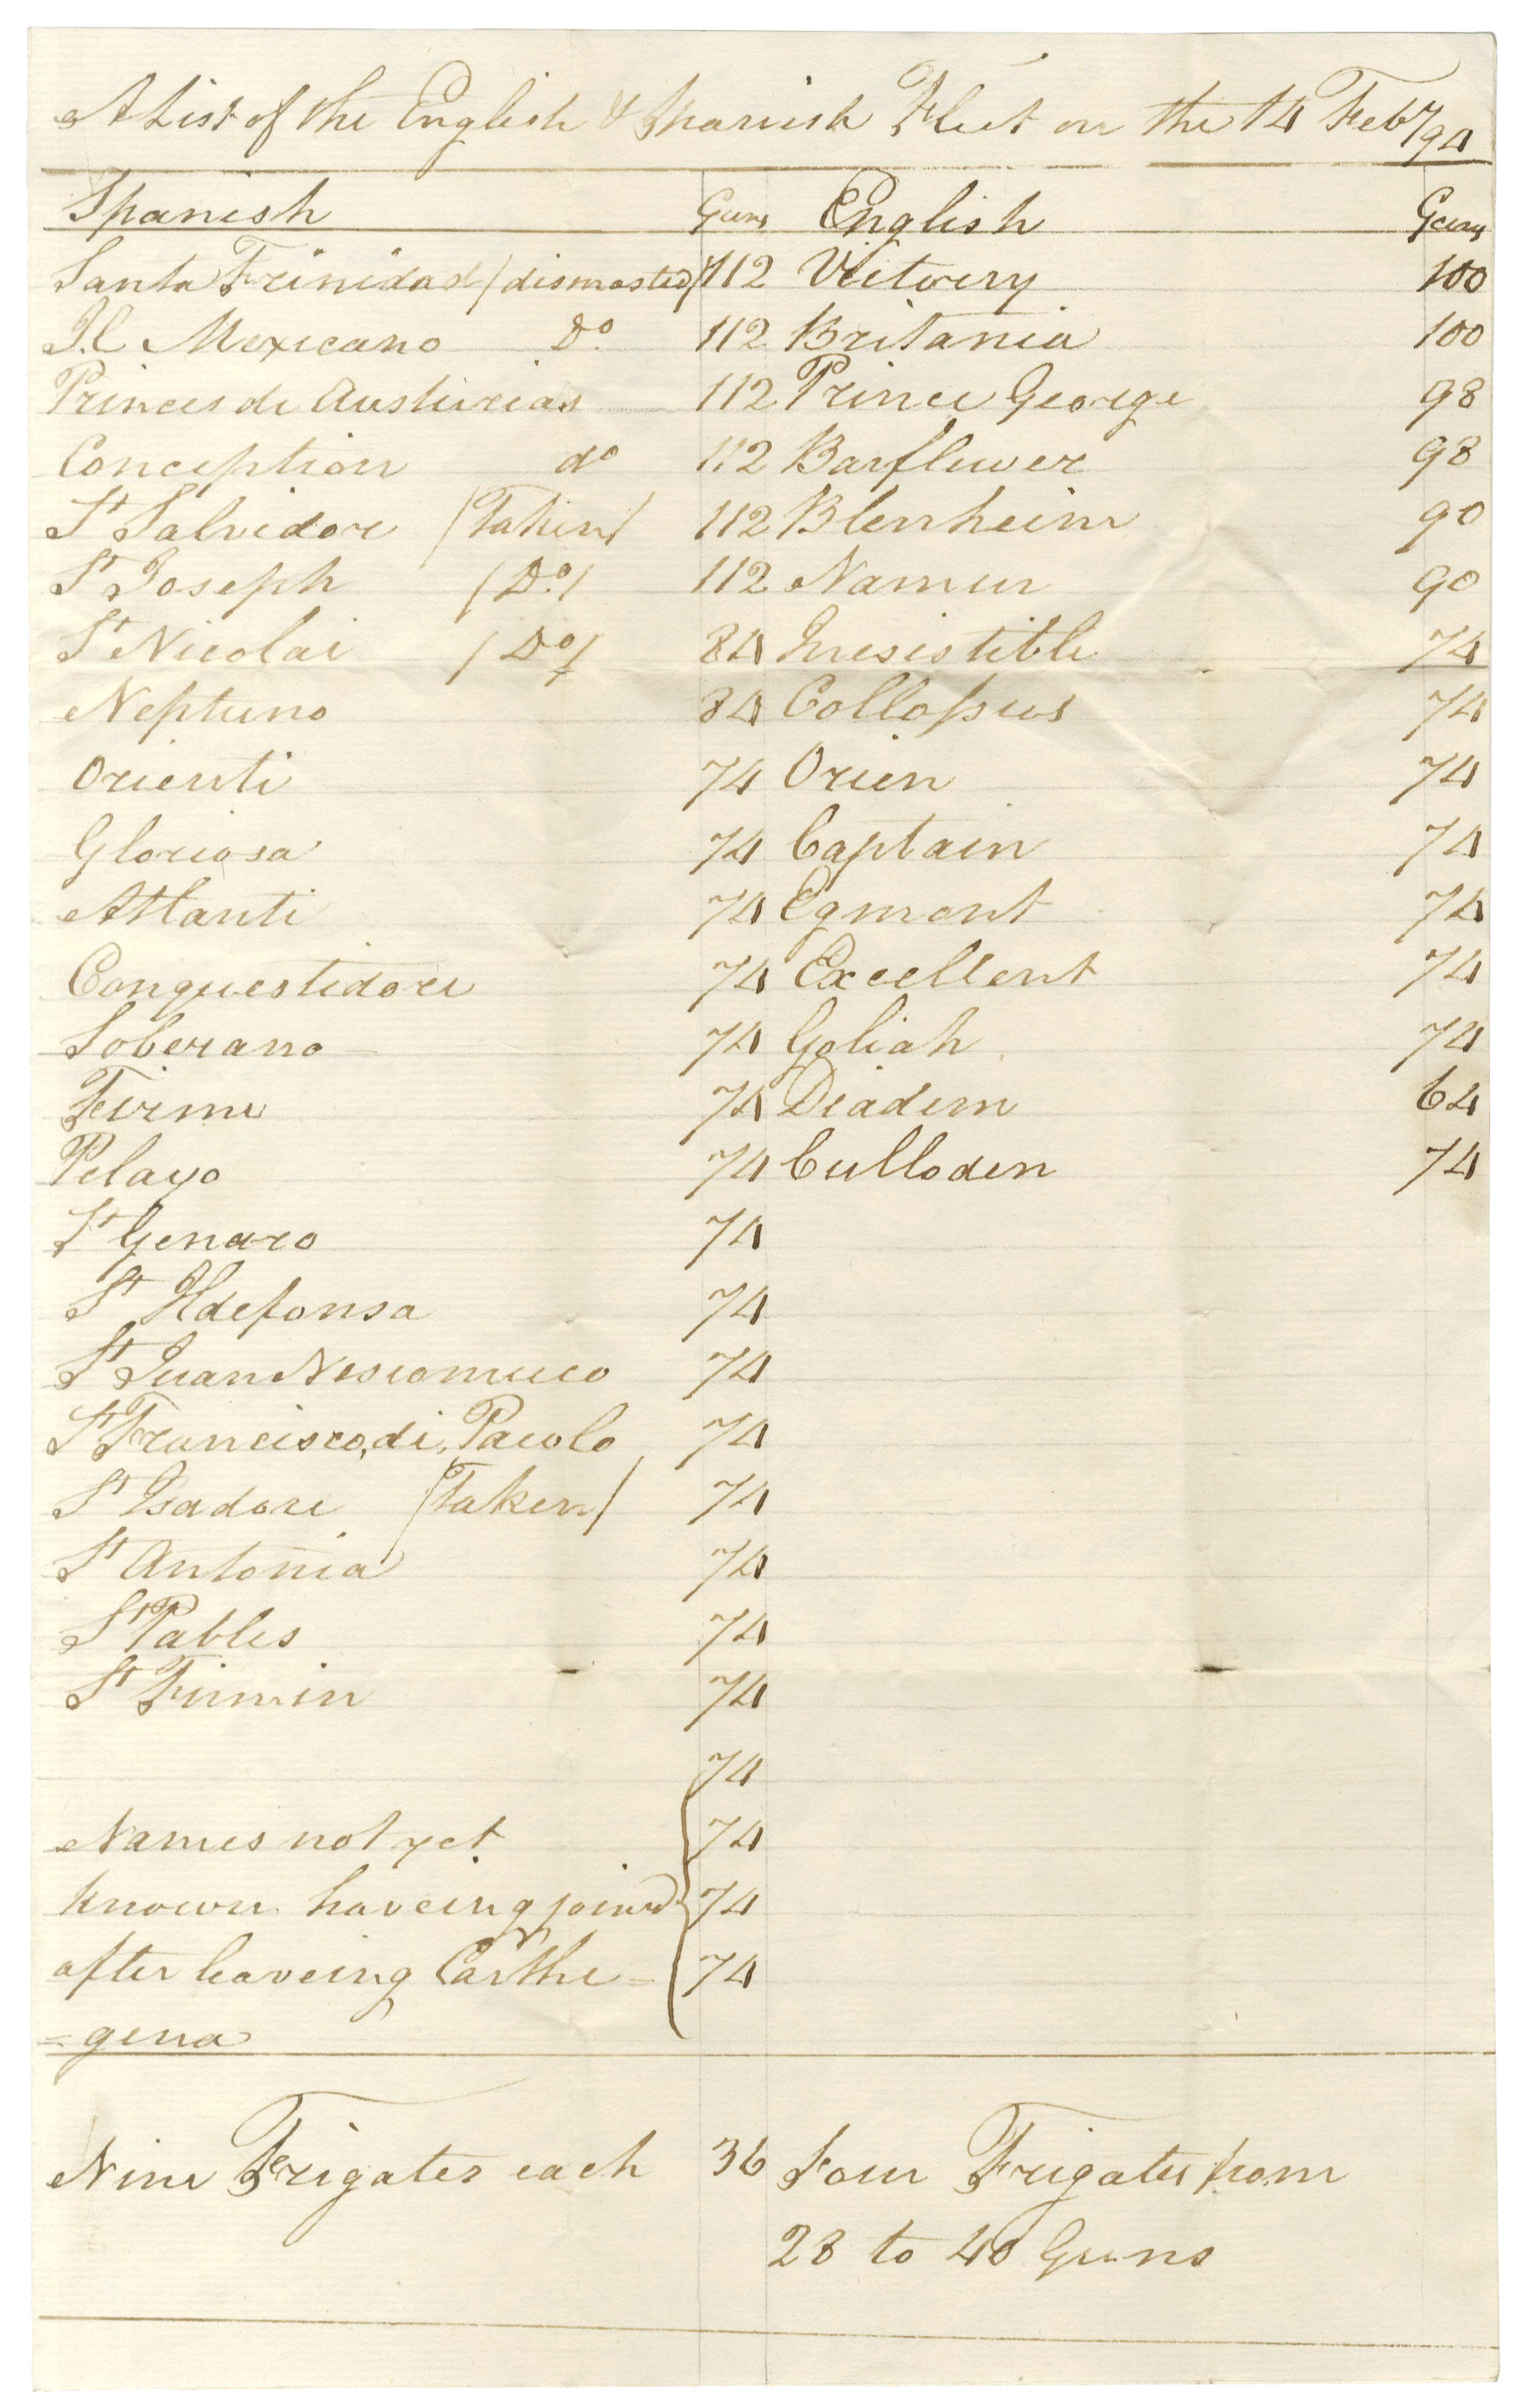 A List of the English & Spanish Fleet on the 14 Feby/94
Spanish Guns English Guns
Santa Trinidad /dismasted/ 112 Victoery 100
Il Mexicano Do 112 Britania 100
Princes de Austurias 112 Prince George 98
Conception do 112 Barfluwer 98
St Salvidore /Taken/ 112 Blenheim 90
St Joseph /Do/ 112 Namur 90
St Nicolai /Do/ 84 Irresistible 74
Neptuno 84 Collossus 74
Orienti 74 Orien 74
Gloriosa 74 Captain 74
Atlanti 74 Egmont 74
Conquestidore 74 Excellent 74
Soberano 74 Goliah 74
Firme 74 Diadem 64
Pelayo 74 Culloden 74
St Genaro 74
St Ildefonsa 74
St Juan Nesiomuco 74
St Francisco, di, Paolo 74
St Isadore /Taken/ 74
St Antonia 74
St Pables 74
St Firmin 74
74
Names not yet 74
known haveing joind 74
after leaveing Carthe= 74
=gena
Nine Frigates each 36 Four Frigates from
28 to 40 Guns